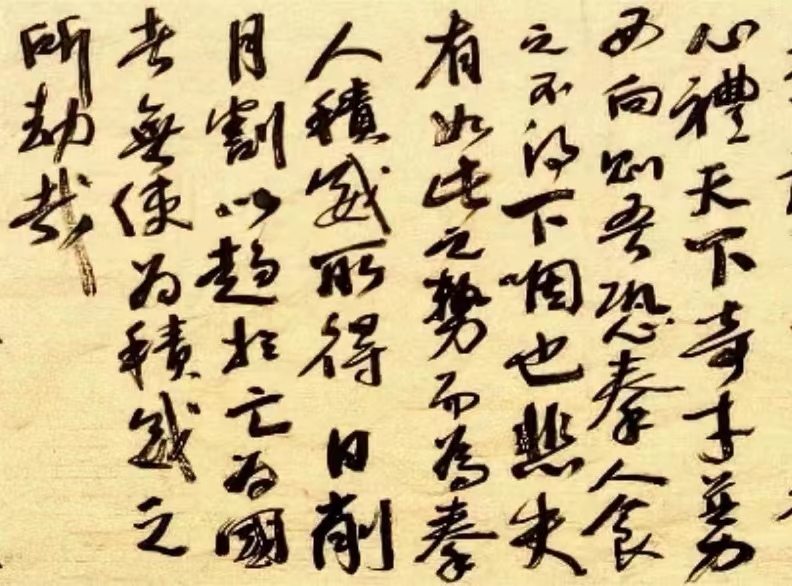 心禮天下奇才并力
西向則吾恐秦人食
之不得下咽也悲夫
有如此之勢而為秦
人積威所得 日削
月割以趨於亡為國
者無使為積威之
所劫哉